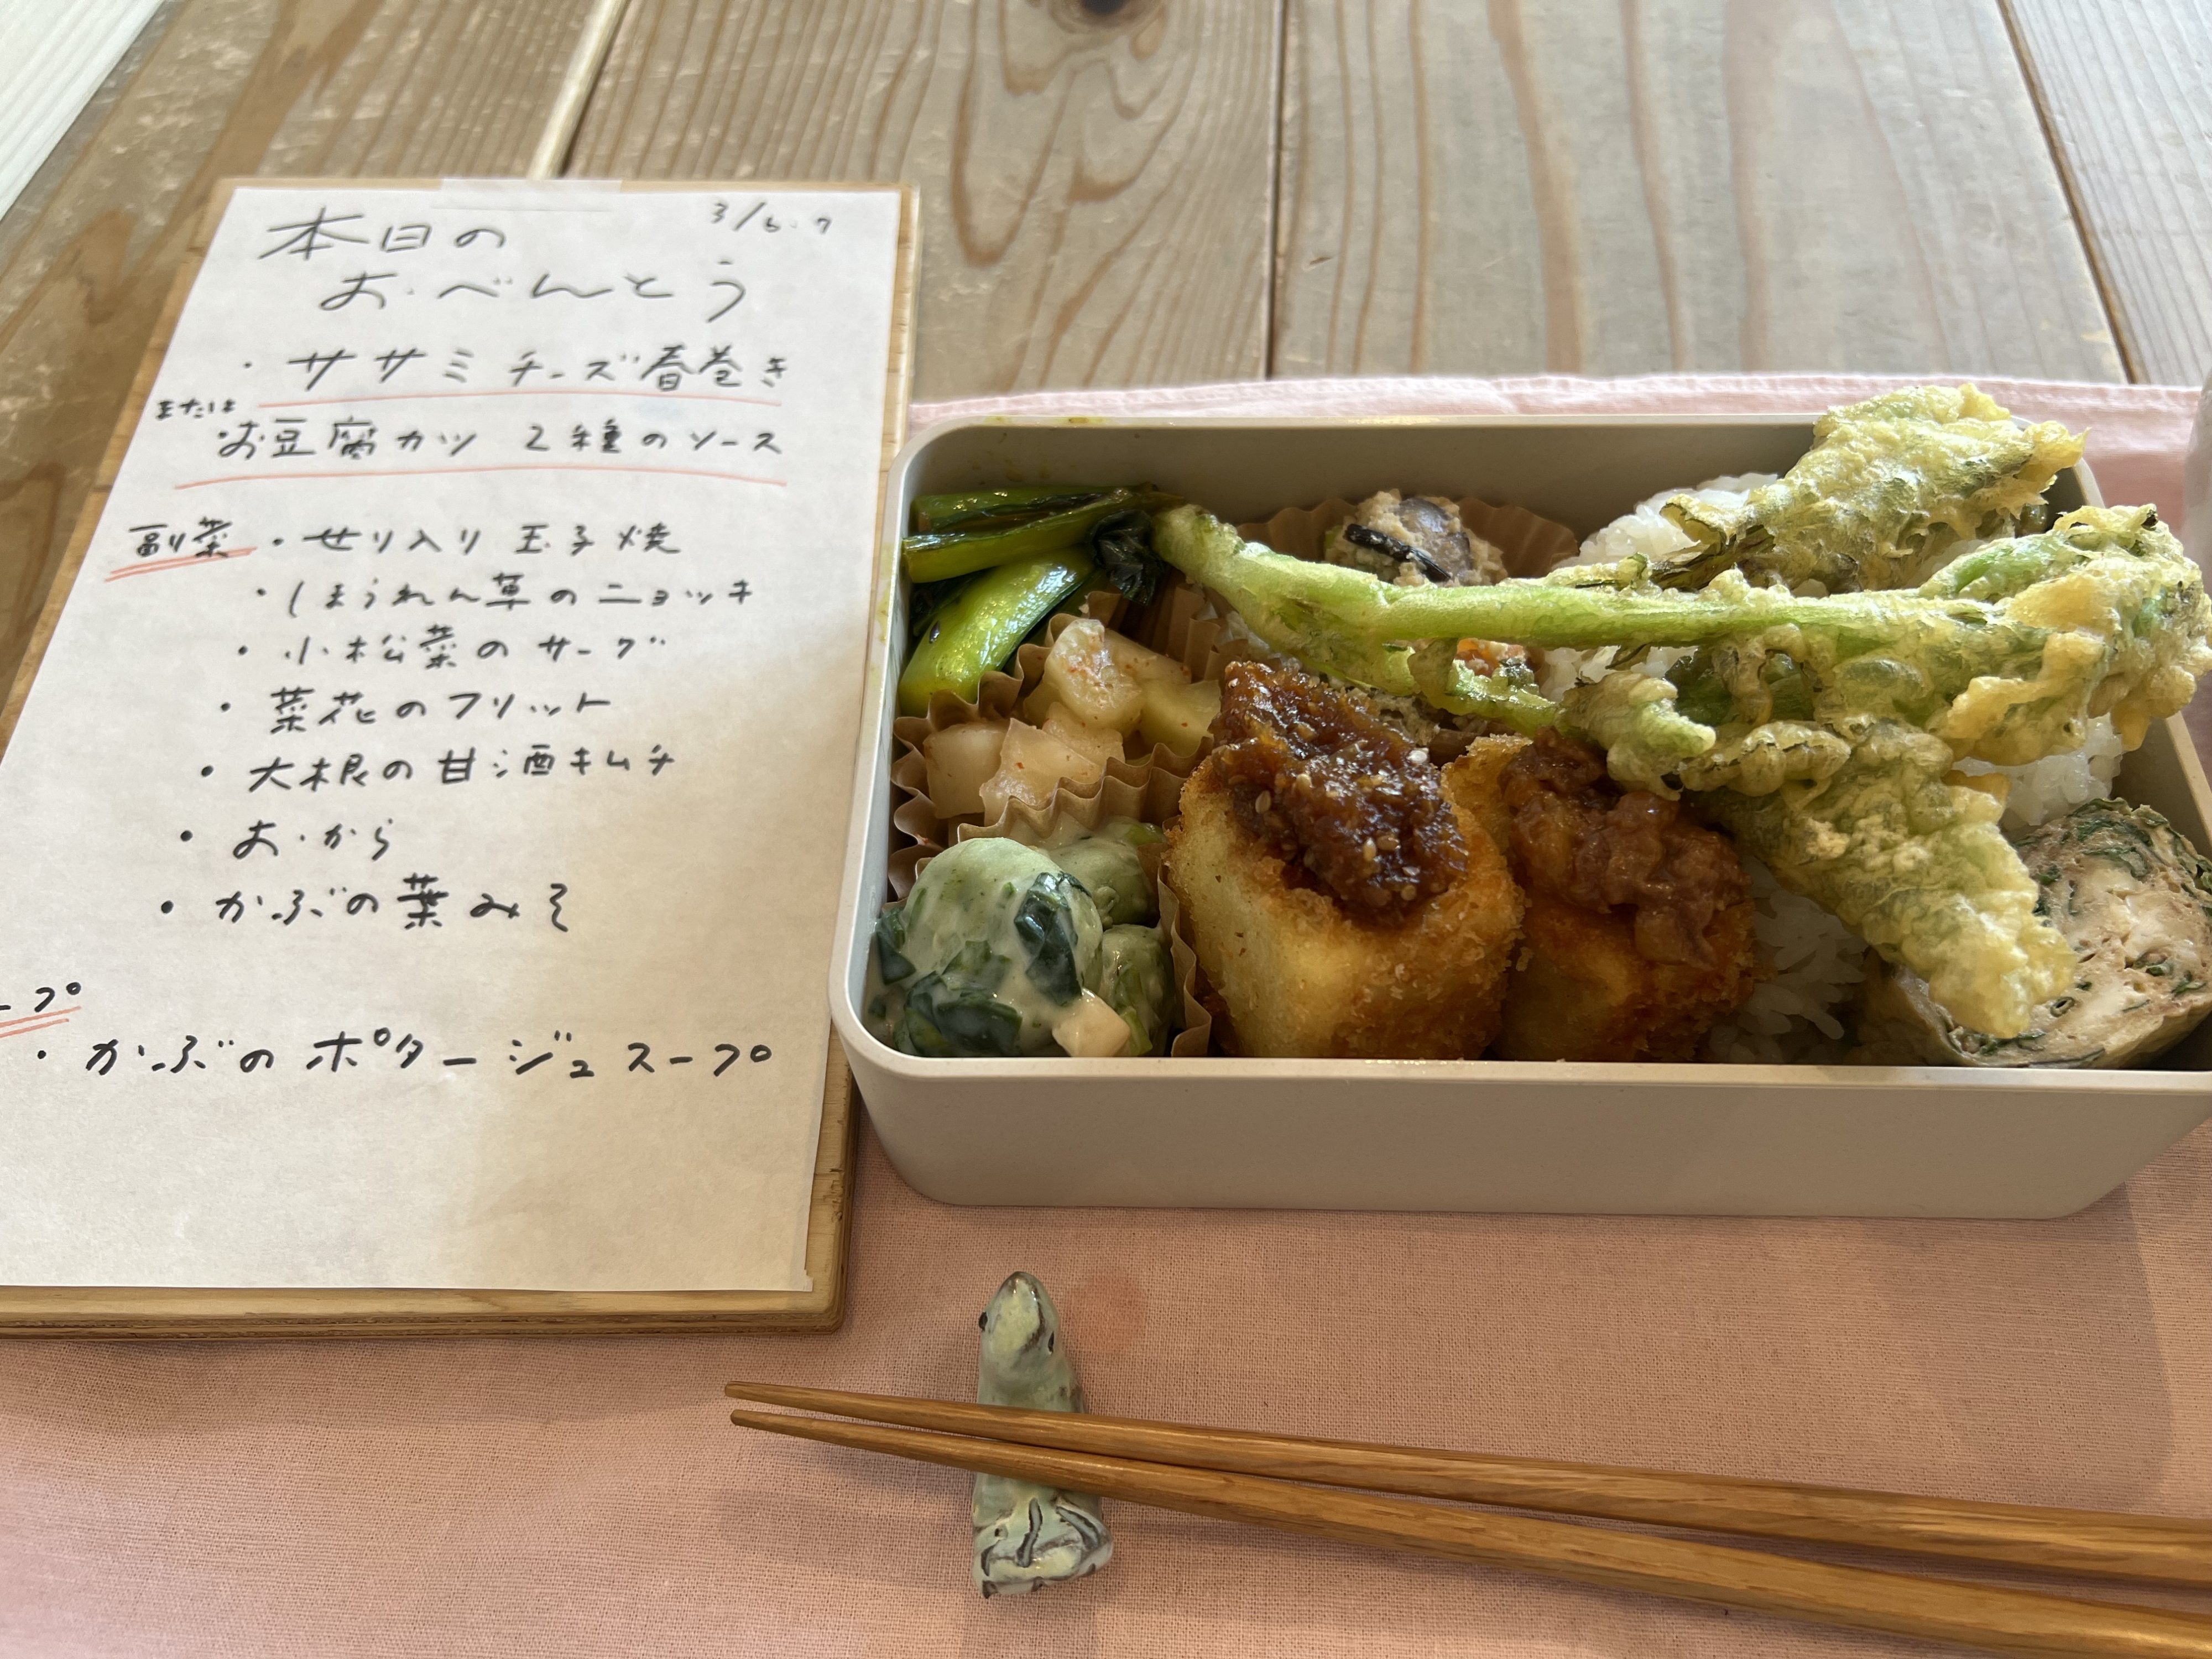 3/6.7
本日の
おべんとう
・ササミチーズ春巻き
または
お豆腐カツ 2種のソース
副菜 ・せり入り玉子焼
・ほうれん草のニョッキ
・小松菜のサーグ
・菜花のフリット
・大根の甘酒キムチ
・おから
・かぶの葉みそ
ープ
・かぶのポタージュスープ